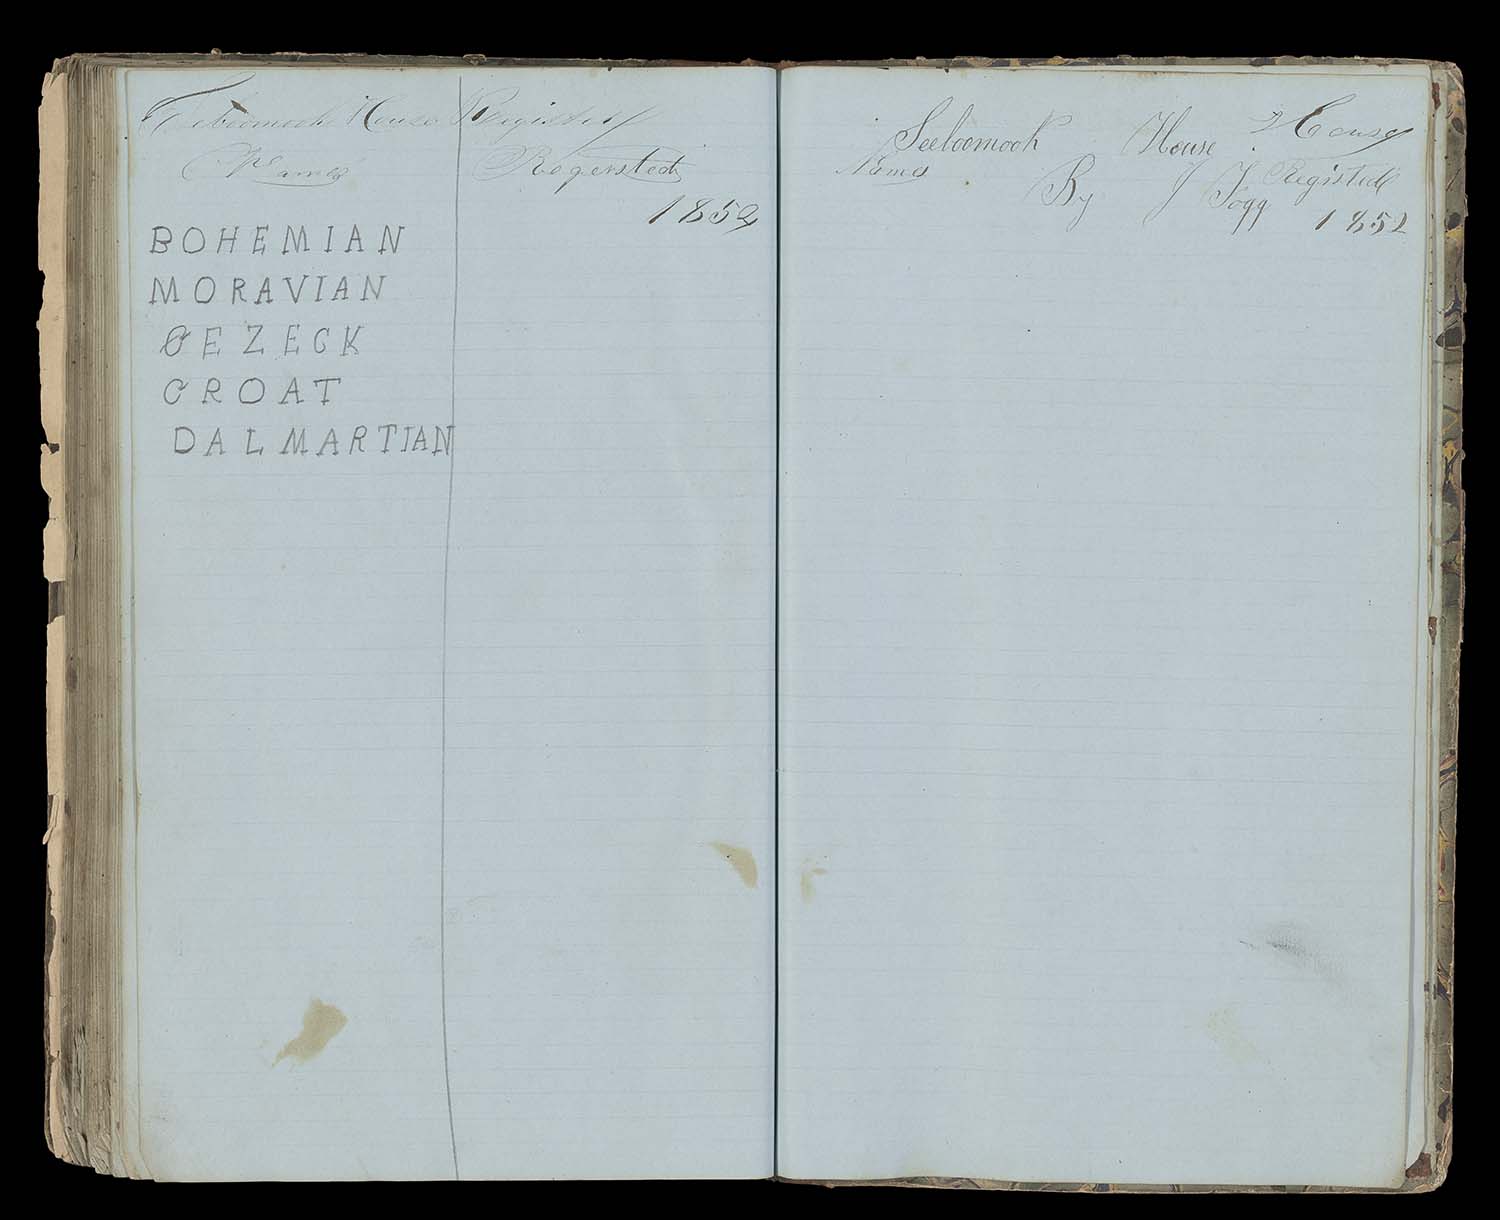 Seeboomook House Register
Names Regersted
1852
BOHEMIAN
MORAVIAN
CEZECK
CROAT
DALMARTIAN
Seeboomook House House
Name By J Fogg Registed
1852